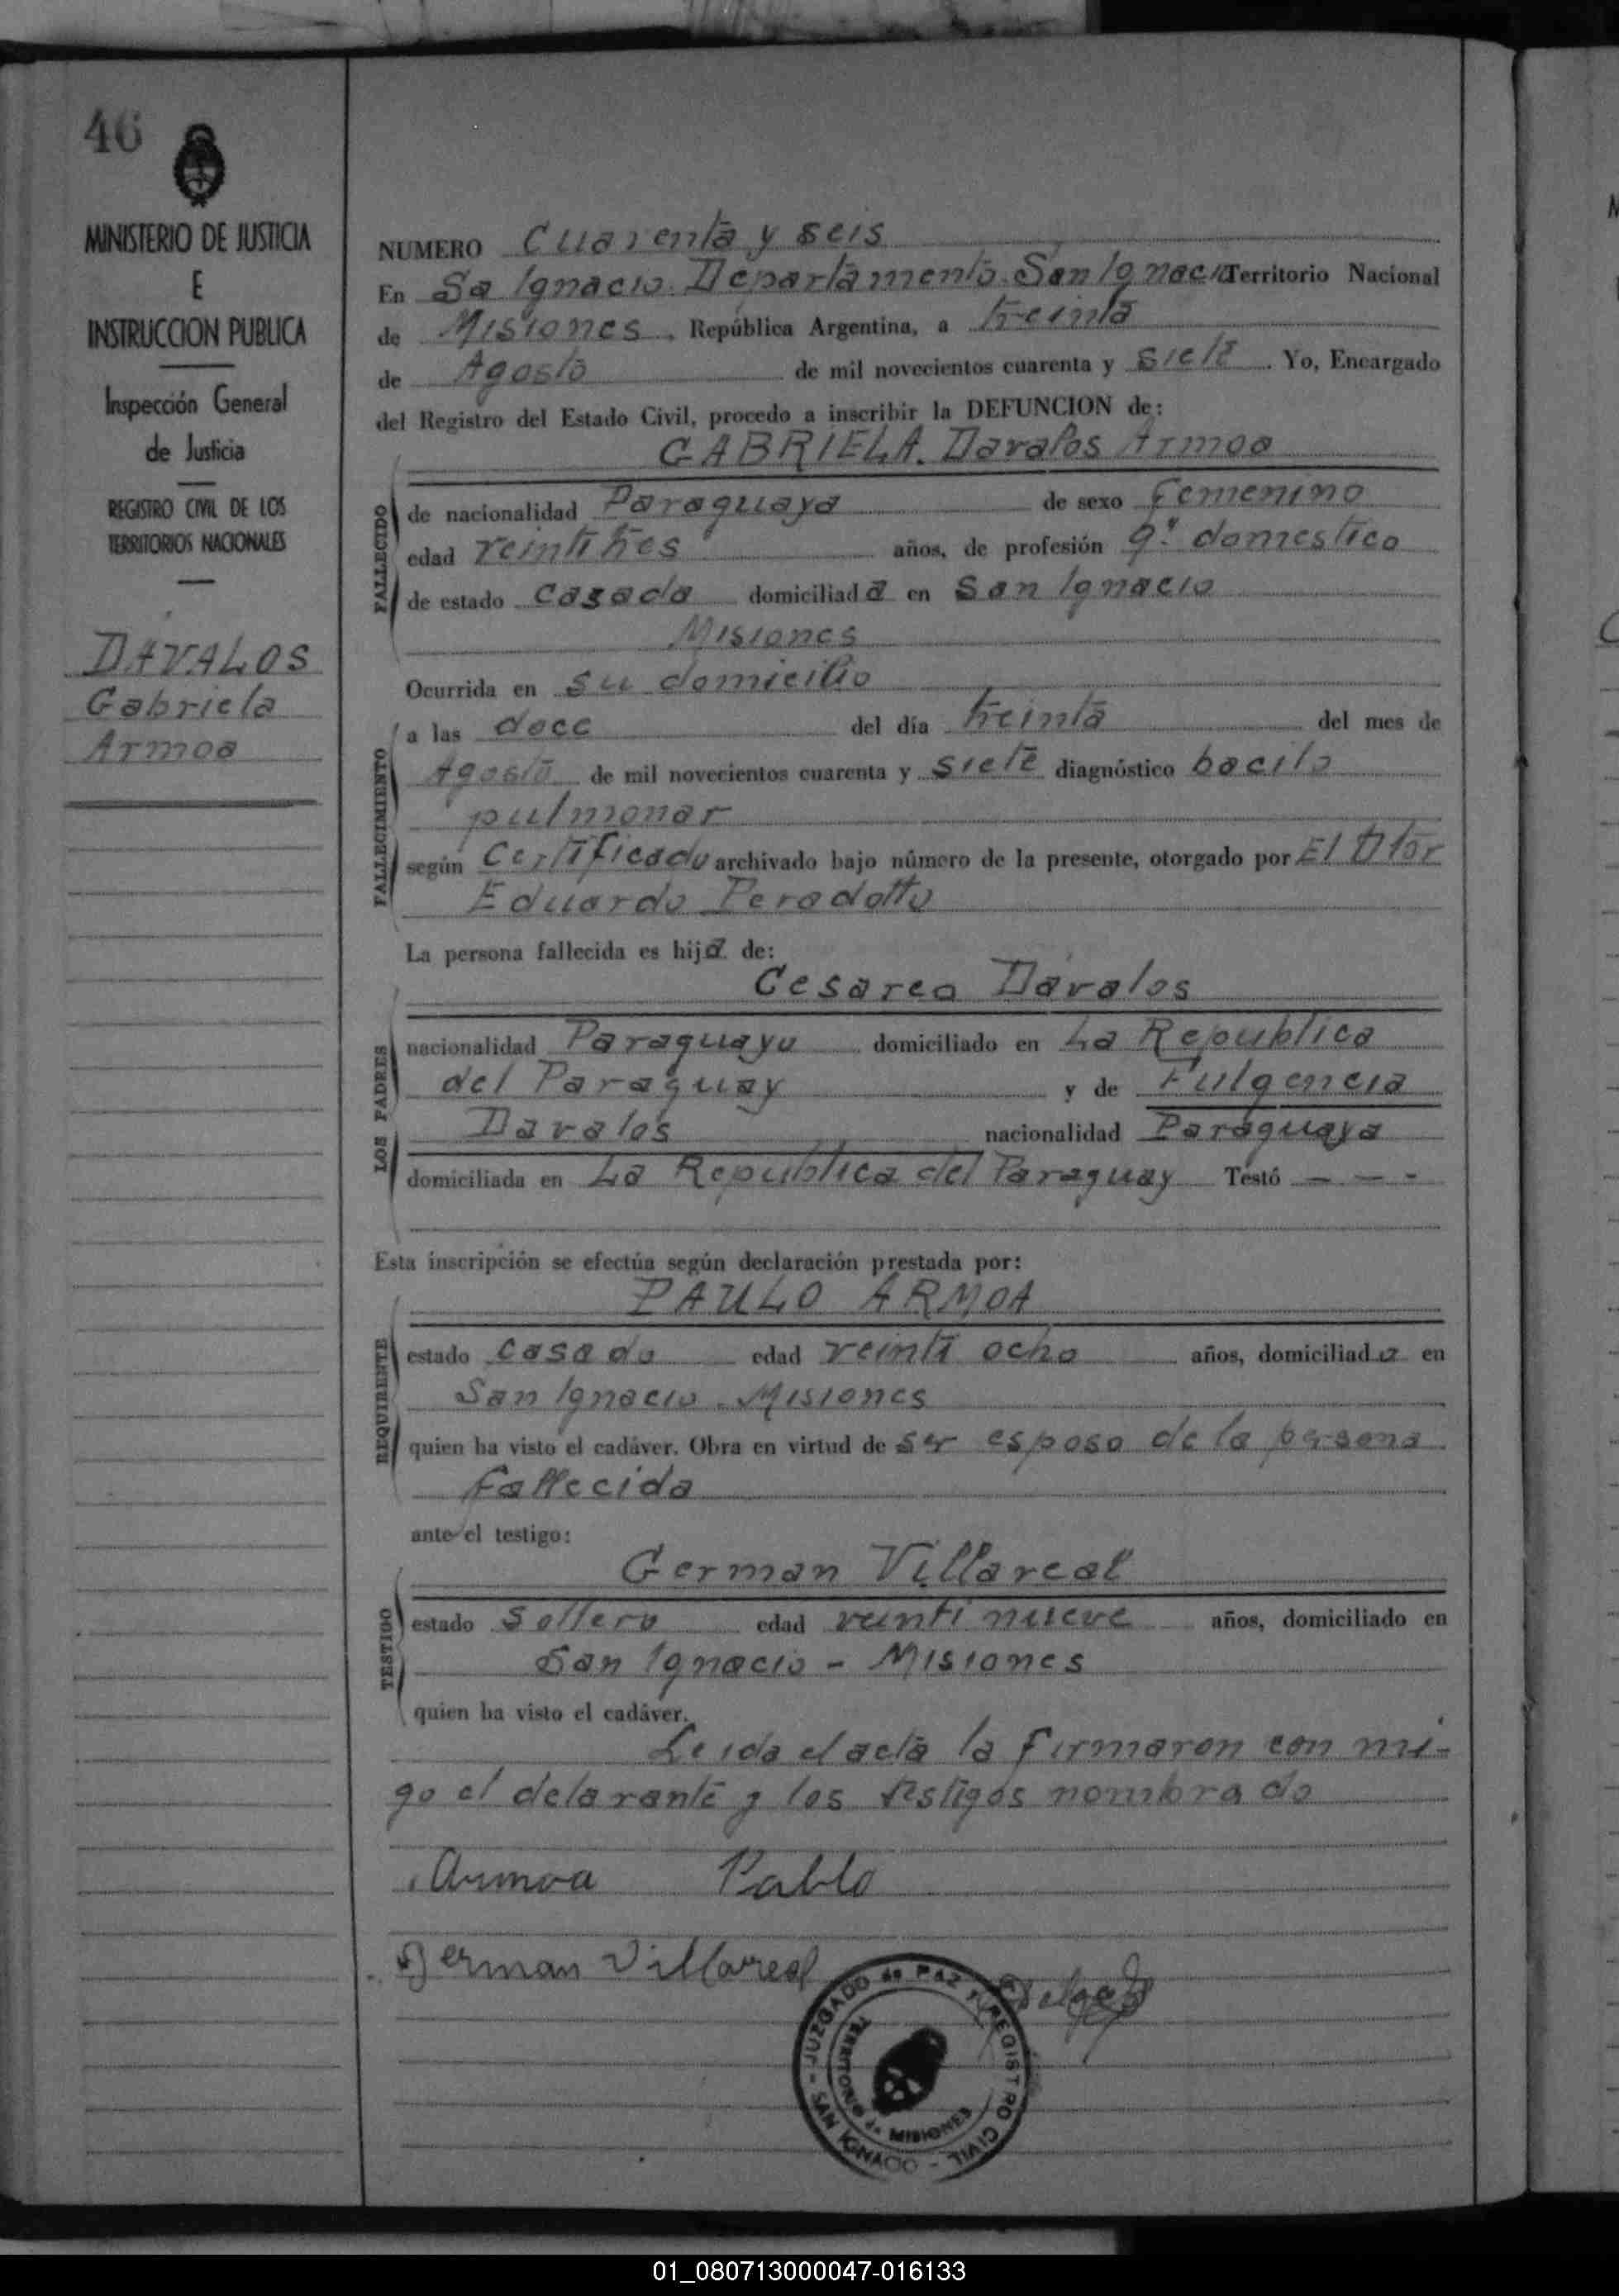 46
MINISTERIO DE JUSTICIA
E
INSTRUCCION PUBLICA
Inspección General
de Justicia
REGISTRO CIVIL DE LOS
TERRITORIOS NACIONALES
DAVALOS
Gabriela
Armoa
NUMERO Cuarenta y seis
En Sa Ignacio Departamento San Ignacio Territorio Nacional
de Misiones, República Argentina, a treinta
de Agosto de mil novecientos cuarenta y siete. Yo, Encargado
del Registro del Estado Civil, procedo a inscribir la DEFUNCION de:
GABRIELA. Davalos Armoa
FALLECIDO
de nacionalidad Paraguaya de sexo Femenino
edad veintitres años, de profesión q. domestico
de estado casada domiciliada en San Ignacio
Misiones
Ocurrida en su domicilio
FALLECIMIENTO
a las doce del día treinta del mes de
Agosto de mil novecientos cuarenta y siete diagnóstico bacilo
pulmonar
según Certificado archivado bajo número de la presente, otorgado por El
Eduardo Peradotto
La persona fallecida es hija de:
Cesareo Davalos
LOS PADRES
nacionalidad Paraguayo domiciliado en La Republica
del Paraguay y de Fulgencia
Davalos nacionalidad Paraguaya
domiciliada en La Republica del Paraguay Testó - - -
Esta inscripción se efectúa según declaración prestada por:
PAULO ARMOA
REQUIRENTE
estado casado edad veinti ocho años, domiciliado en
San Ignacio. Misiones
quien ha visto el cadáver. Obra en virtud de ser esposo de la persona
fallecida
ante el testigo:
German Villareal
TESTIGO
estado soltero edad veinti nueve años, domiciliado en
San Ignacio - Misiones
quien ha visto el cadáver.
Leida el acta la firmaron con mi-
go el delarante y los testigos nombrado
Armoa Pablo
German Villareal
JUZGADO de PAZ Y REGISTRO CIVIL - SAN IGNACIO -
TERRITORIO de MISIONES
01_080713000047-016133